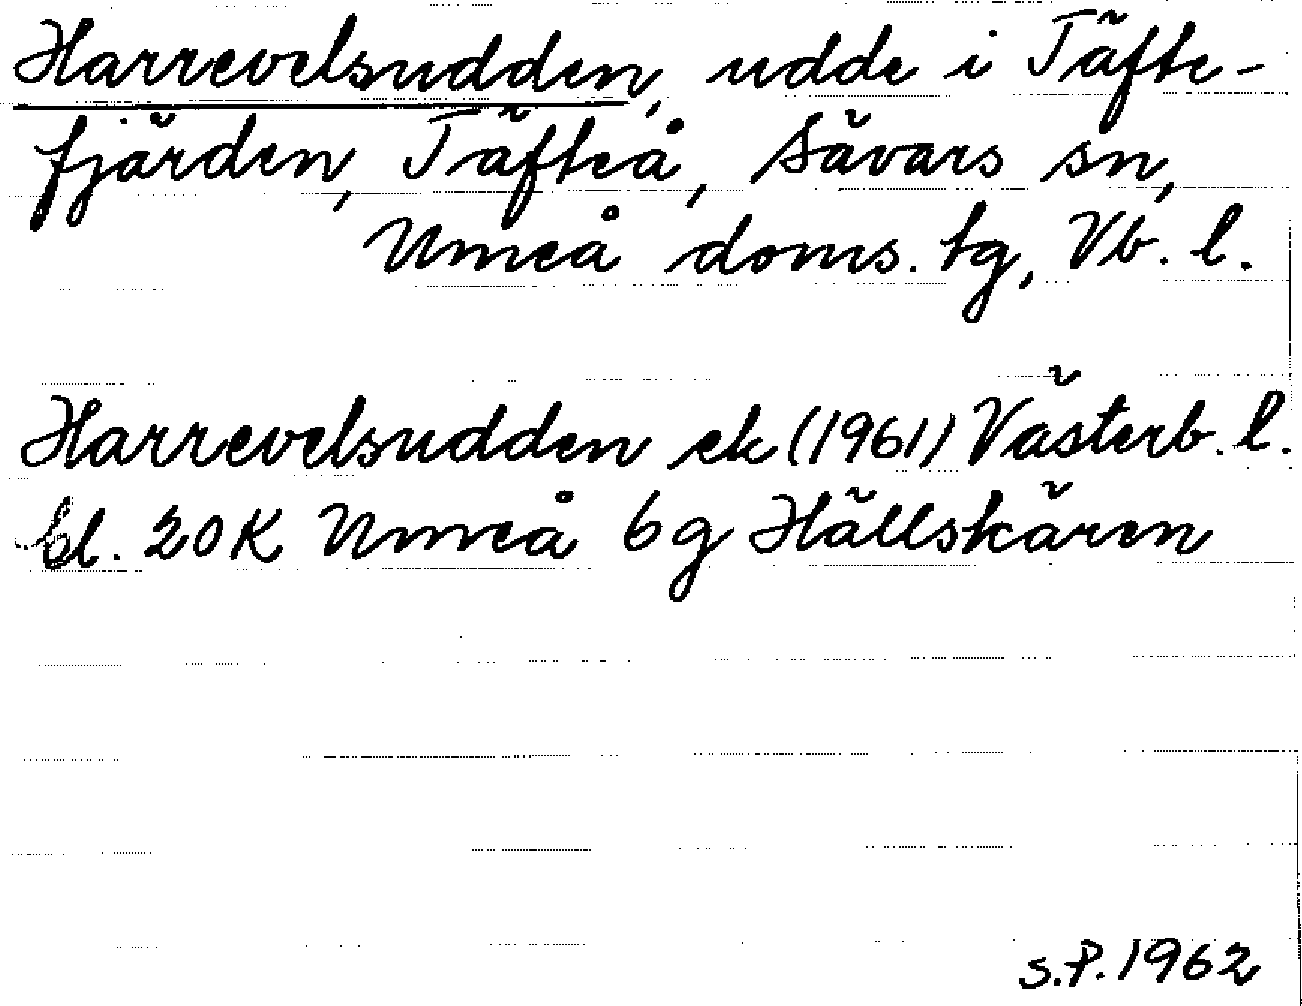 Harrevelsudden, udde i Täfte-
fjärden, Täfteå, Sävars sn,
Umeå doms. tg, Vb. l.
Harrevelsudden ek (1961) Västerb. l.
bl. 20 K Umeå 6 g Hällskären
S.P. 1962